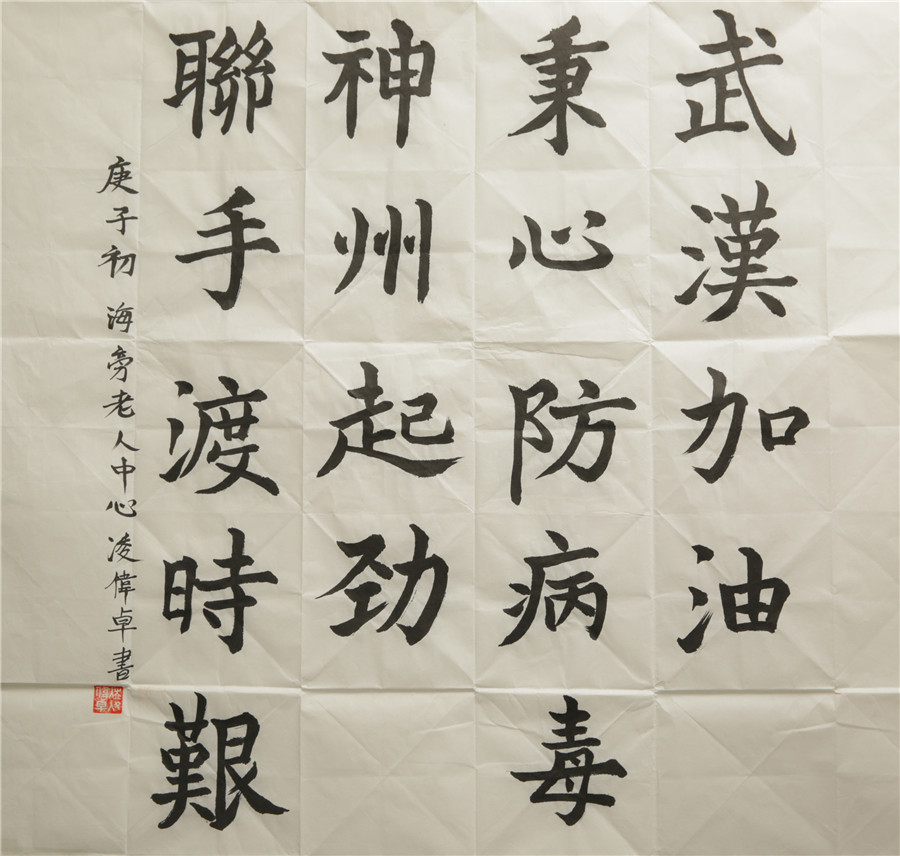 武漢加油
秉心防病毒
神州起劲
聯手渡時艱
庚子初 海旁老人中心 凌偉卓書